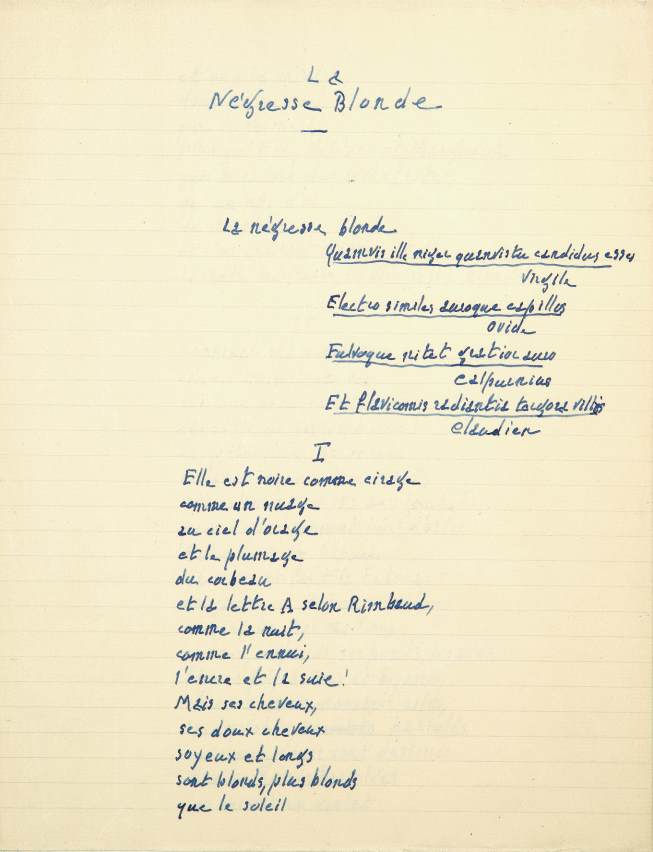 La
Négresse Blonde
La négresse blonde
Quamvis ille niger quamvis tu candidus esses
Virgile
Electro similes auroque capillos
Ovide
Fulvoque nitet gratior auro
Calpurnius
Et flavicomis radiantia tergora villis
Claudien
I
Elle est noire comme cirage
comme un nuage
au ciel d'orage
et le plumage
du corbeau
et la lettre A selon Rimbaud,
comme la nuit,
comme l'ennui,
l'encre et la suie!
Mais ses cheveux,
ses doux cheveux
soyeux et longs
sont blonds, plus blonds
que le soleil